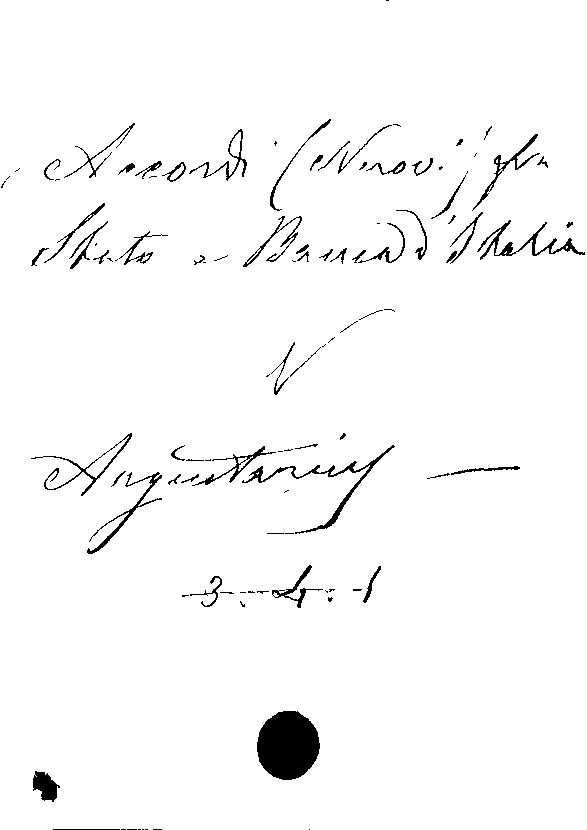 Accordi (Nuovi) fra
Stato e Banca d'Italia
V
Augustarius —
3.4.1